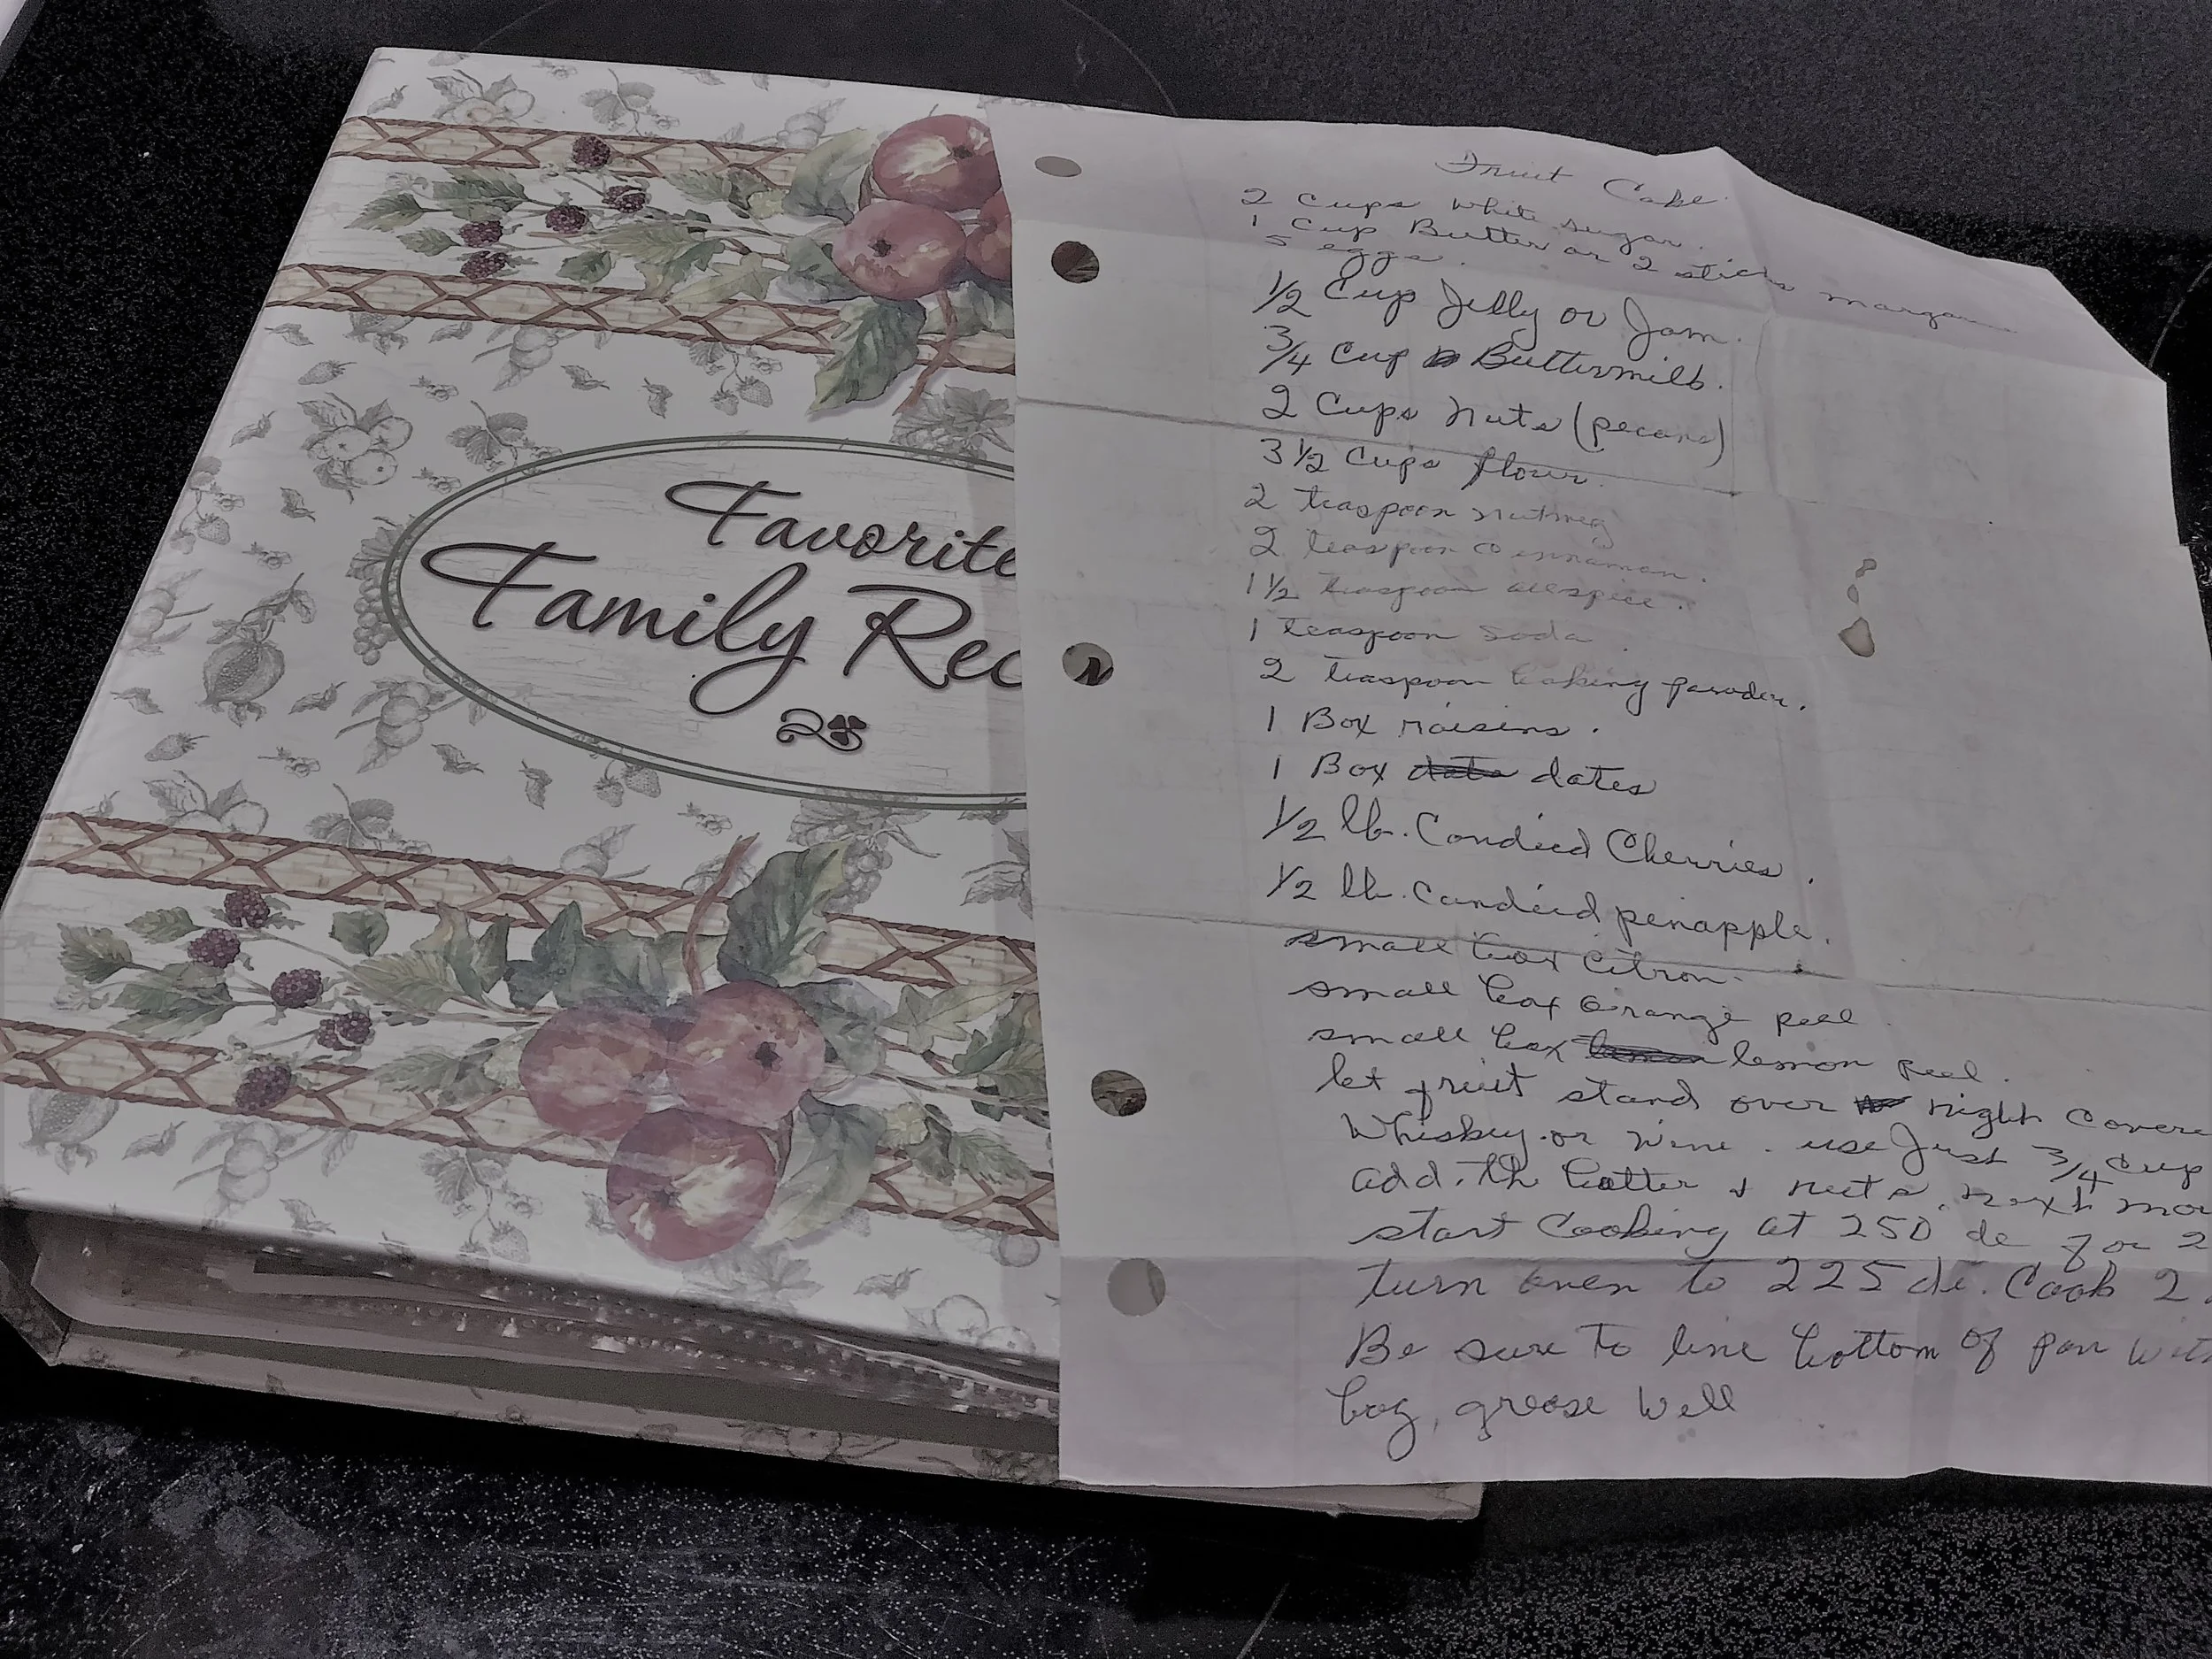 Favorite
Family Rec
Fruit Cake
2 Cups White sugar.
1 Cup Butter or 2 sticks
5 eggs.
1/2 Cup Jelly or Jam.
3/4 Cup Buttermilk.
2 Cups nuts (pecans)
3 1/2 Cups flour.
2 teaspoon nutmeg
2 teaspoon cinnamon.
1 1/2 teaspoon allspice.
1 teaspoon Soda.
2 teaspoon baking powder.
1 Box raisins.
1 Box dates
1/2 lb. Candied Cherries.
1/2 lb. Candied pinapple.
small box Citron.
small box Orange peel.
small box lemon peel.
let fruit stand over night Covere
Whiskey or Wine. use Just 3/4 Cup
add. the batter + nuts. next mor
start Cooking at 250 de for 2
turn oven to 225 de. Cook 2
Be sure to line bottom of pan With
bag, grease Well